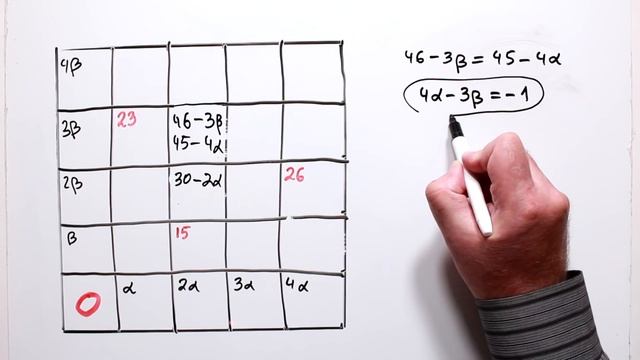 4β
3β 23 46-3β
45-4α
2β 30-2α 26
β 15
0 α 2α 3α 4α
46-3β = 45-4α
4α-3β = -1